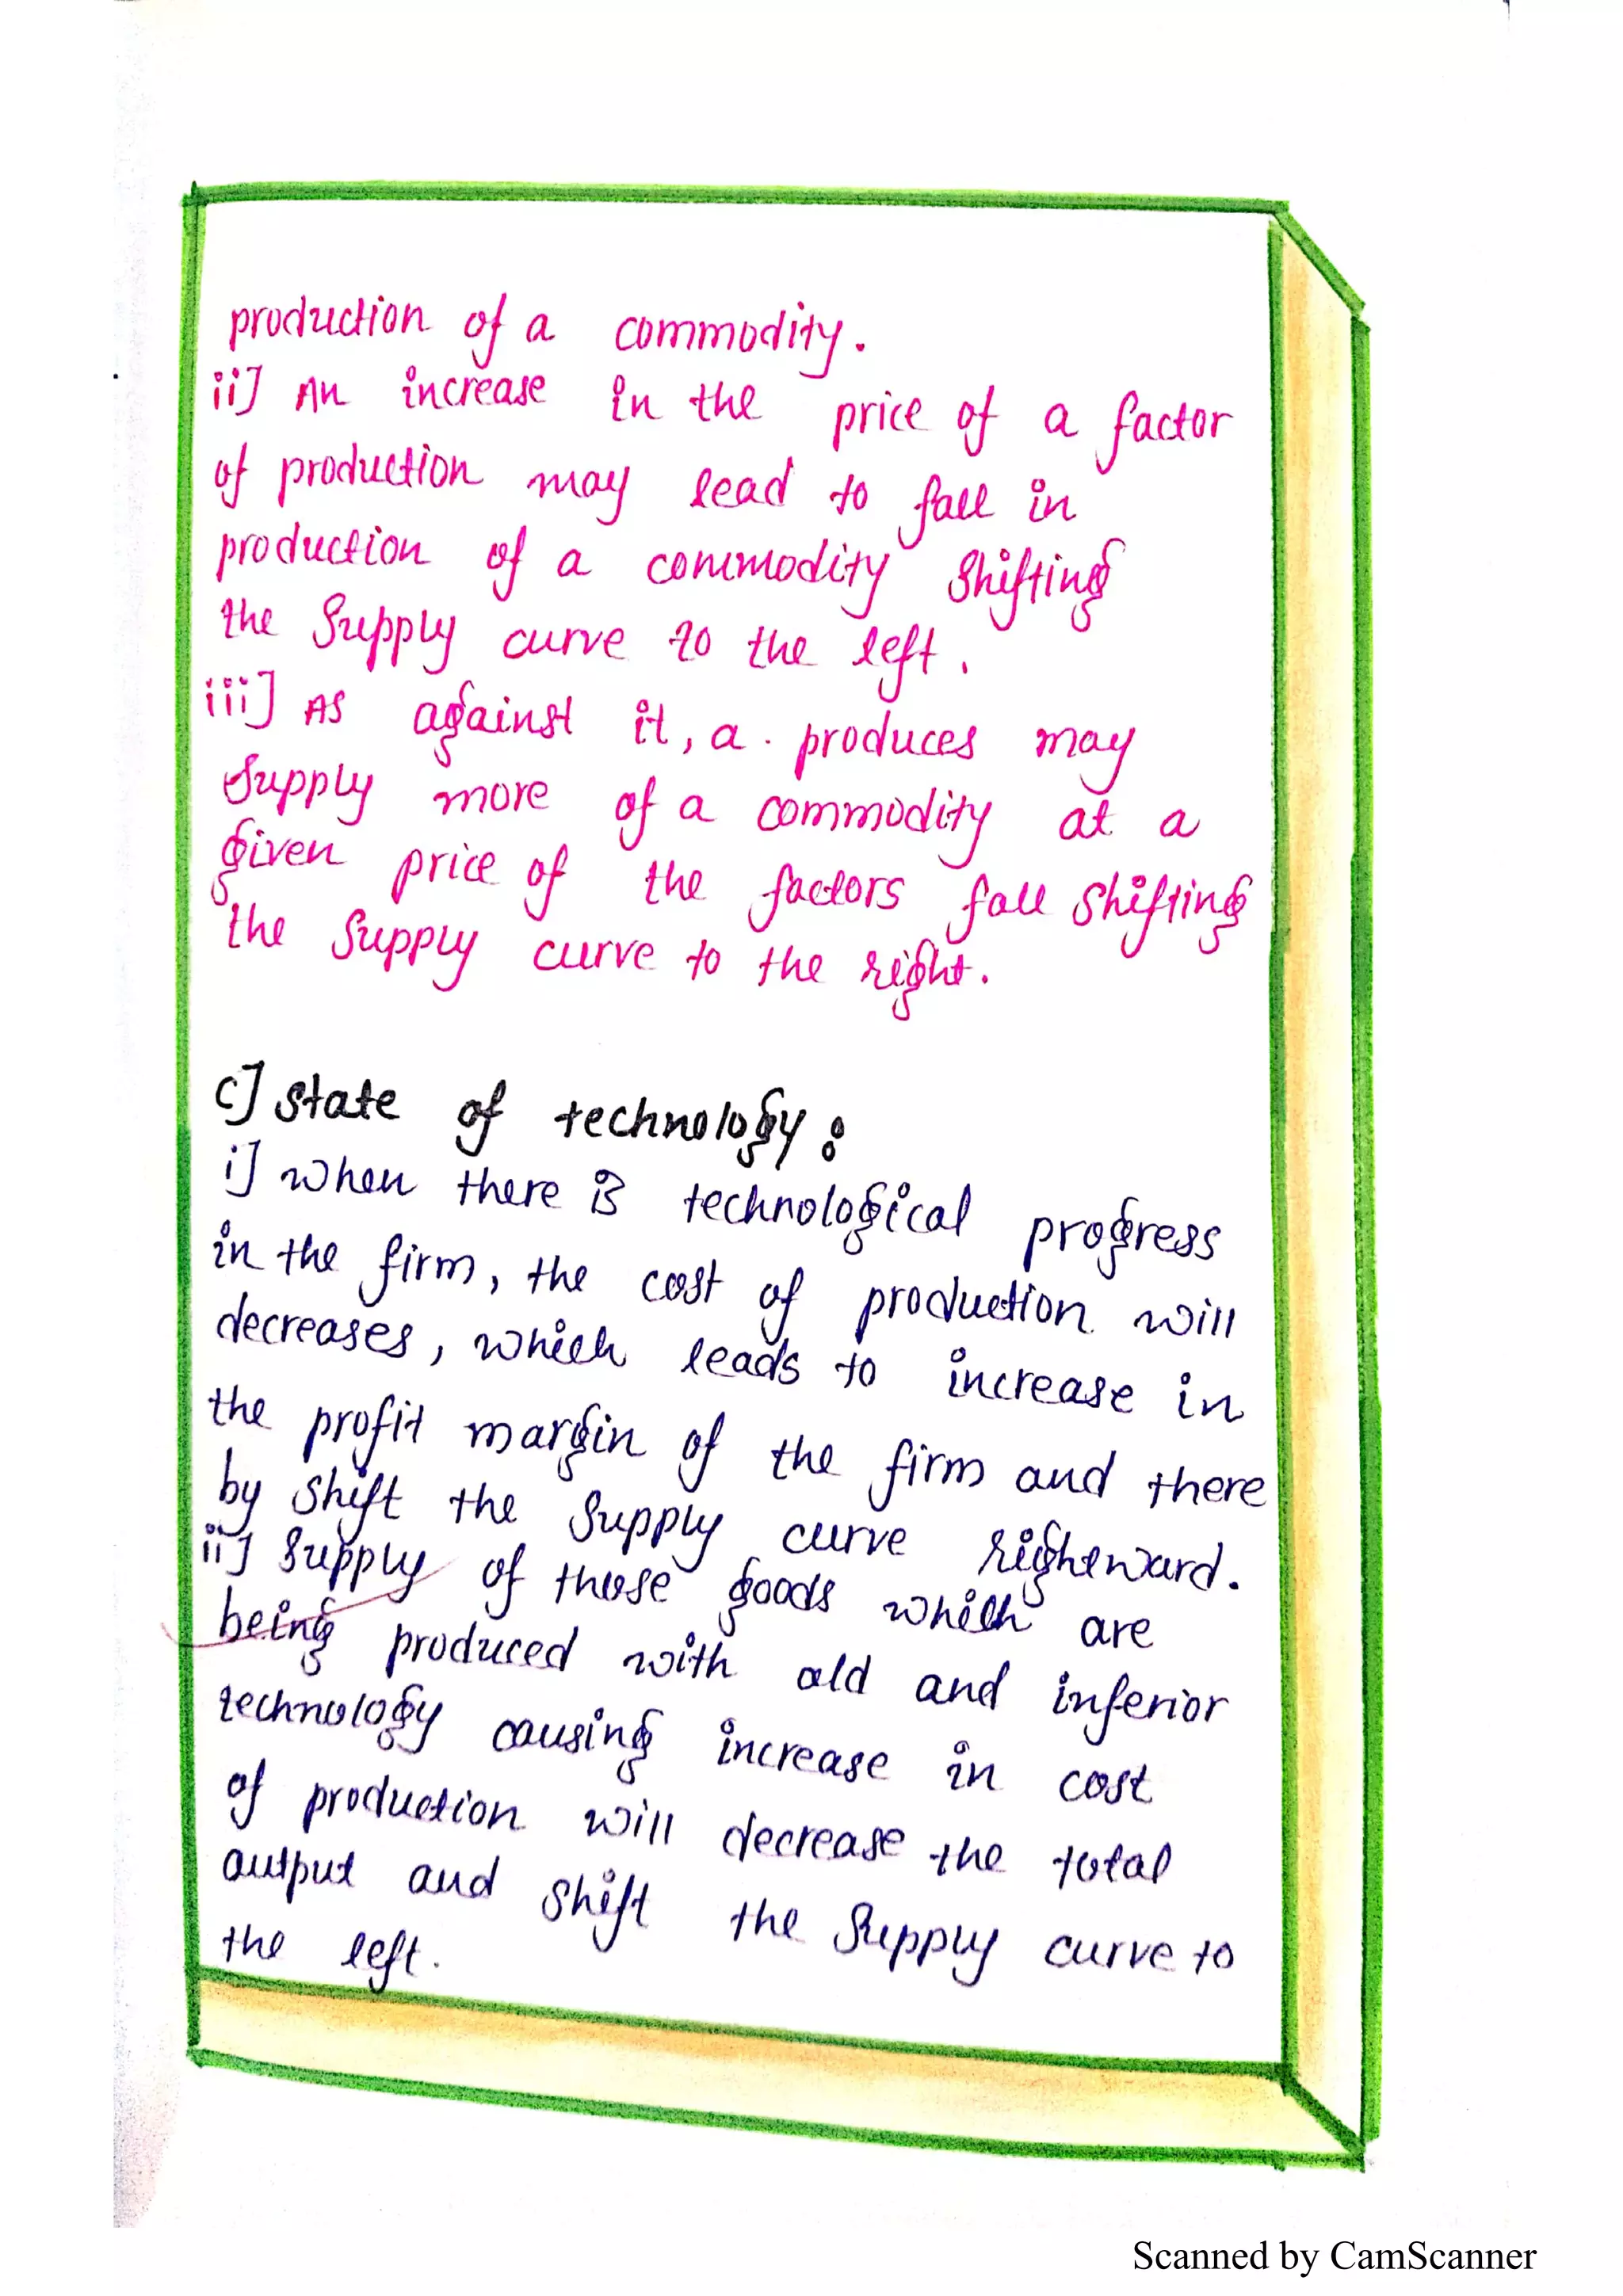 production of a commodity.
ii] An increase in the price of a factor
of production may lead to fall in
production of a commodity shifting
the supply curve to the left.
iii] As against it, a produces may
supply more of a commodity at a
given price of the factors fall shifting
the supply curve to the right.
c] state of technology:
i] when there is technological progress
in the firm, the cost of production will
decreases, which leads to increase in
the profit margin of the firm and there
by shift the supply curve rightward.
ii] supply of those goods which are
being produced with old and inferior
technology causing increase in cost
of production will decrease the total
output and shift the supply curve to
the left.
Scanned by CamScanner